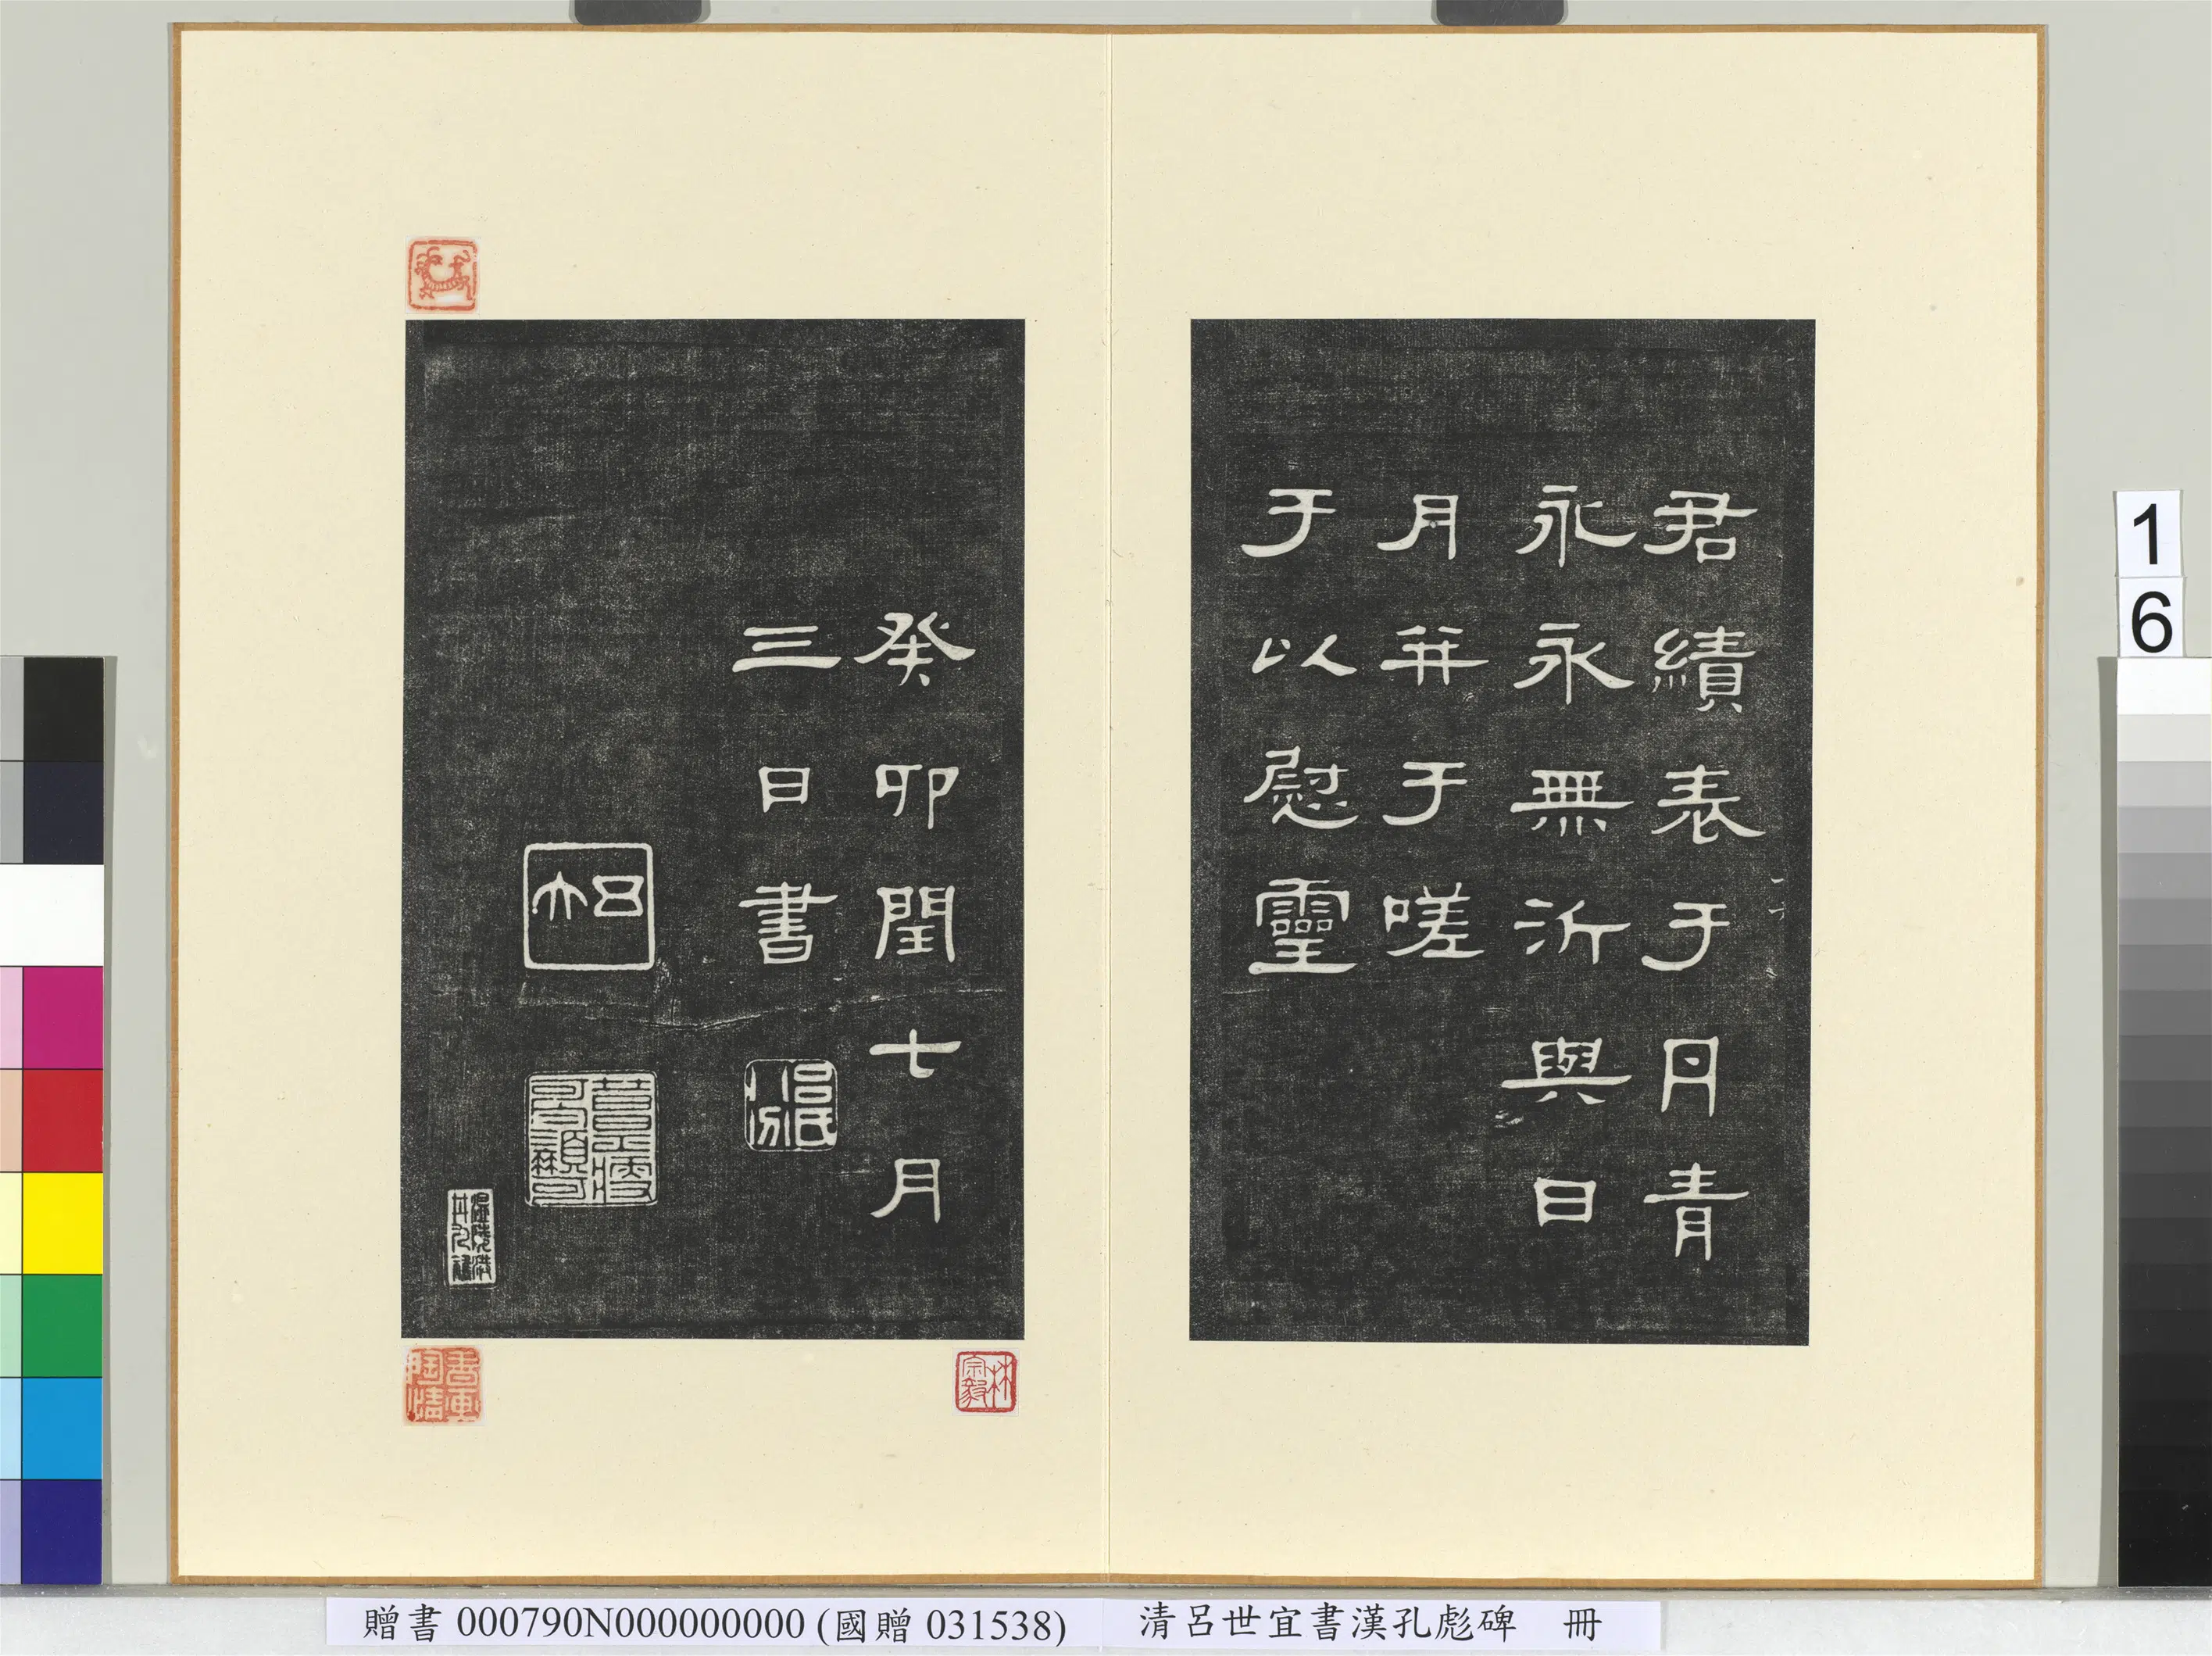 君績表于丹青
永永無沂與日
月并于嗟
于以慰靈
癸卯閏七月
三日書
呂
呂氏
林宗毅
書畫陶情
1
6
贈書 000790N000000000 (國贈 031538)
清呂世宜書漢孔彪碑 冊